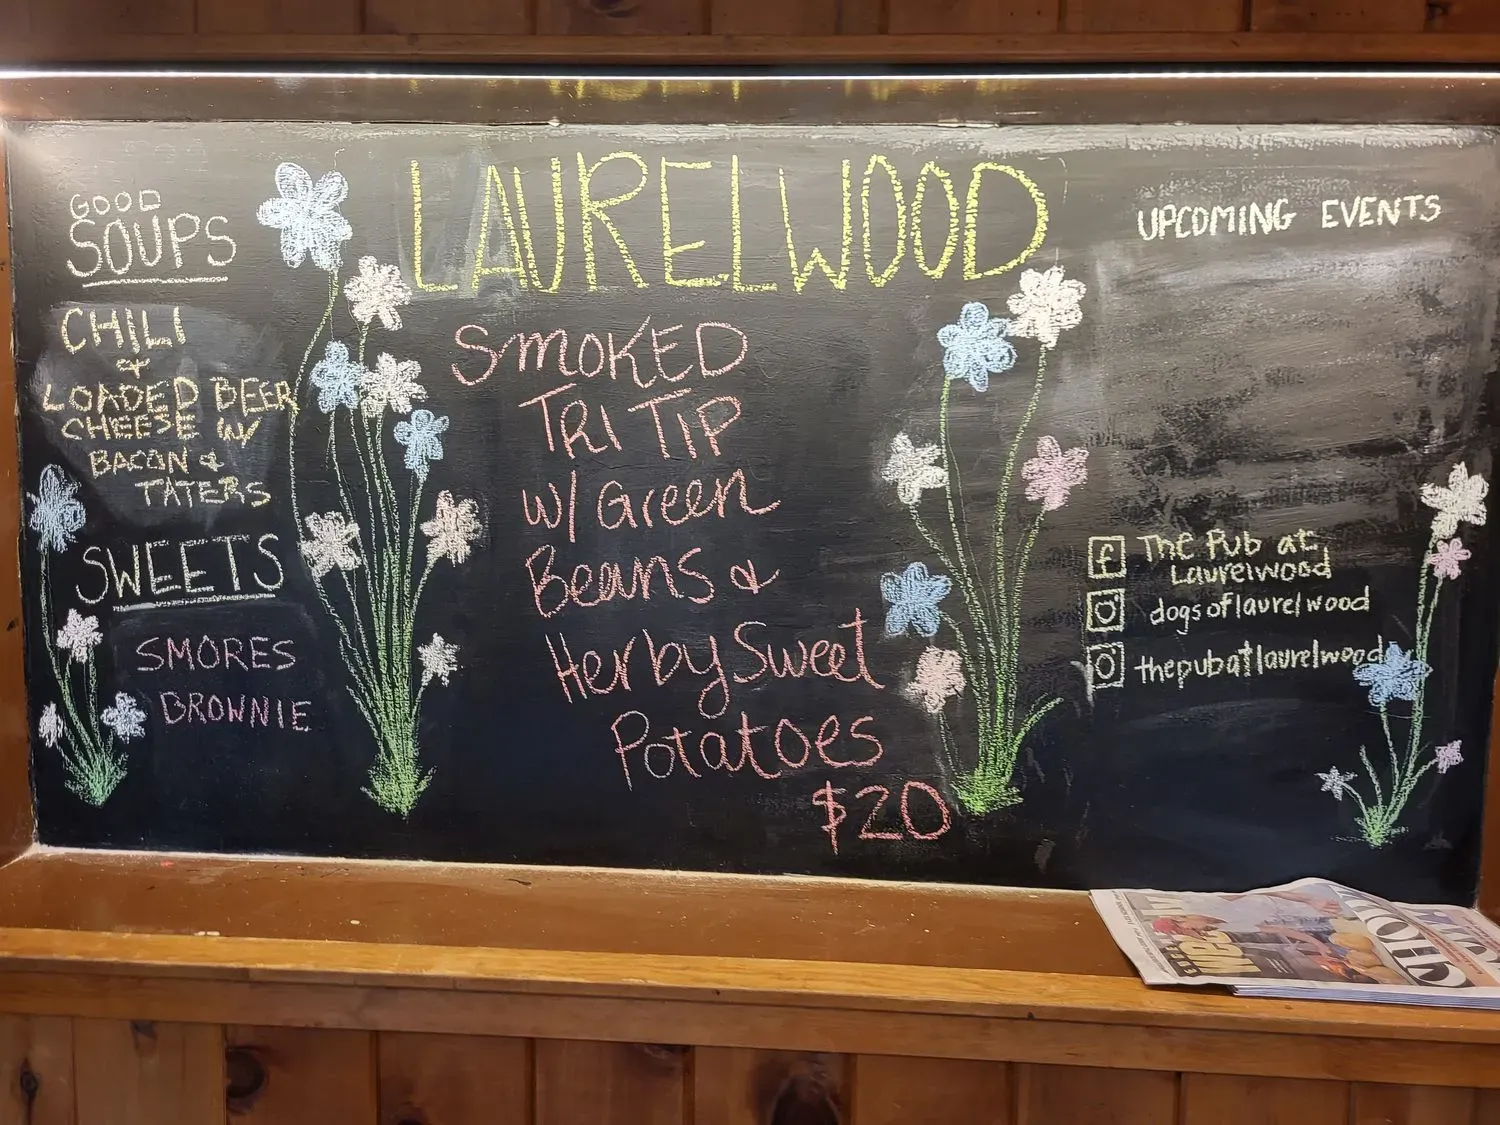 GOOD
SOUPS
CHILI
&
LOADED BEER
CHEESE W/
BACON &
TATERS
SWEETS
SMORES
BROWNIE
LAURELWOOD
SMOKED
TRI TIP
w/ Green
Beans &
Herby Sweet
Potatoes
$20
UPCOMING EVENTS
f The Pub at
Laurelwood
dogsoflaurelwood
thepubatlaurelwood